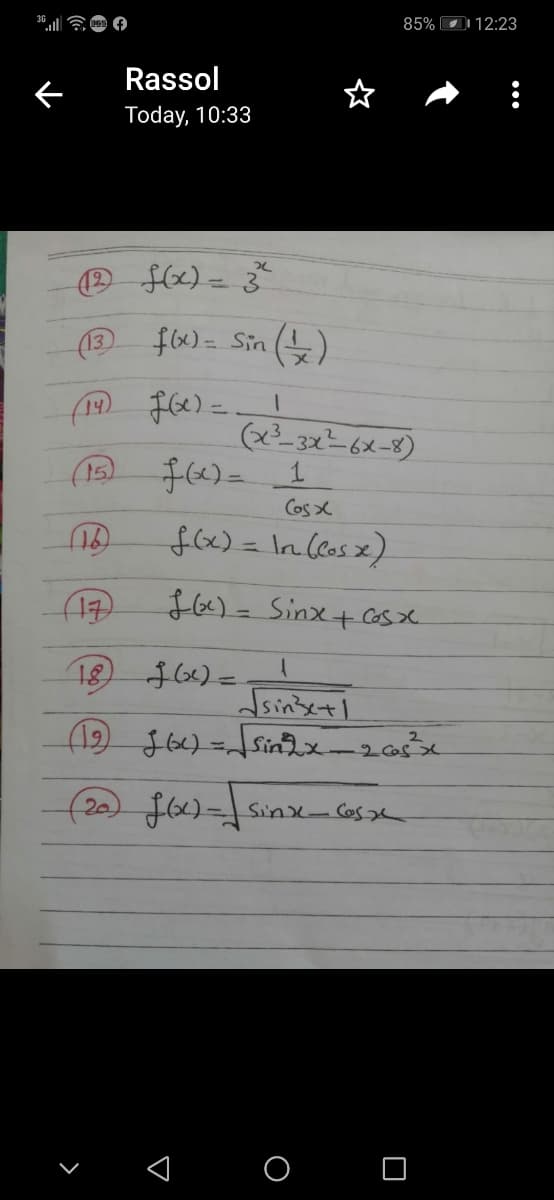 3G 965 85% 12:23
Rassol
Today, 10:33
12 f(x) = 3^x
13 f(x) = Sin (1/x)
14 f(x) = 1/(x³-3x²-6x-8)
15 f(x) = 1/Cosx
16 f(x) = ln(Cosx)
17 f(x) = Sinx + Cosx
18 f(x) = 1/√sin²x+1
19 f(x) = √sin2x - 2cos²x
20 f(x) = √sinx - Cosx